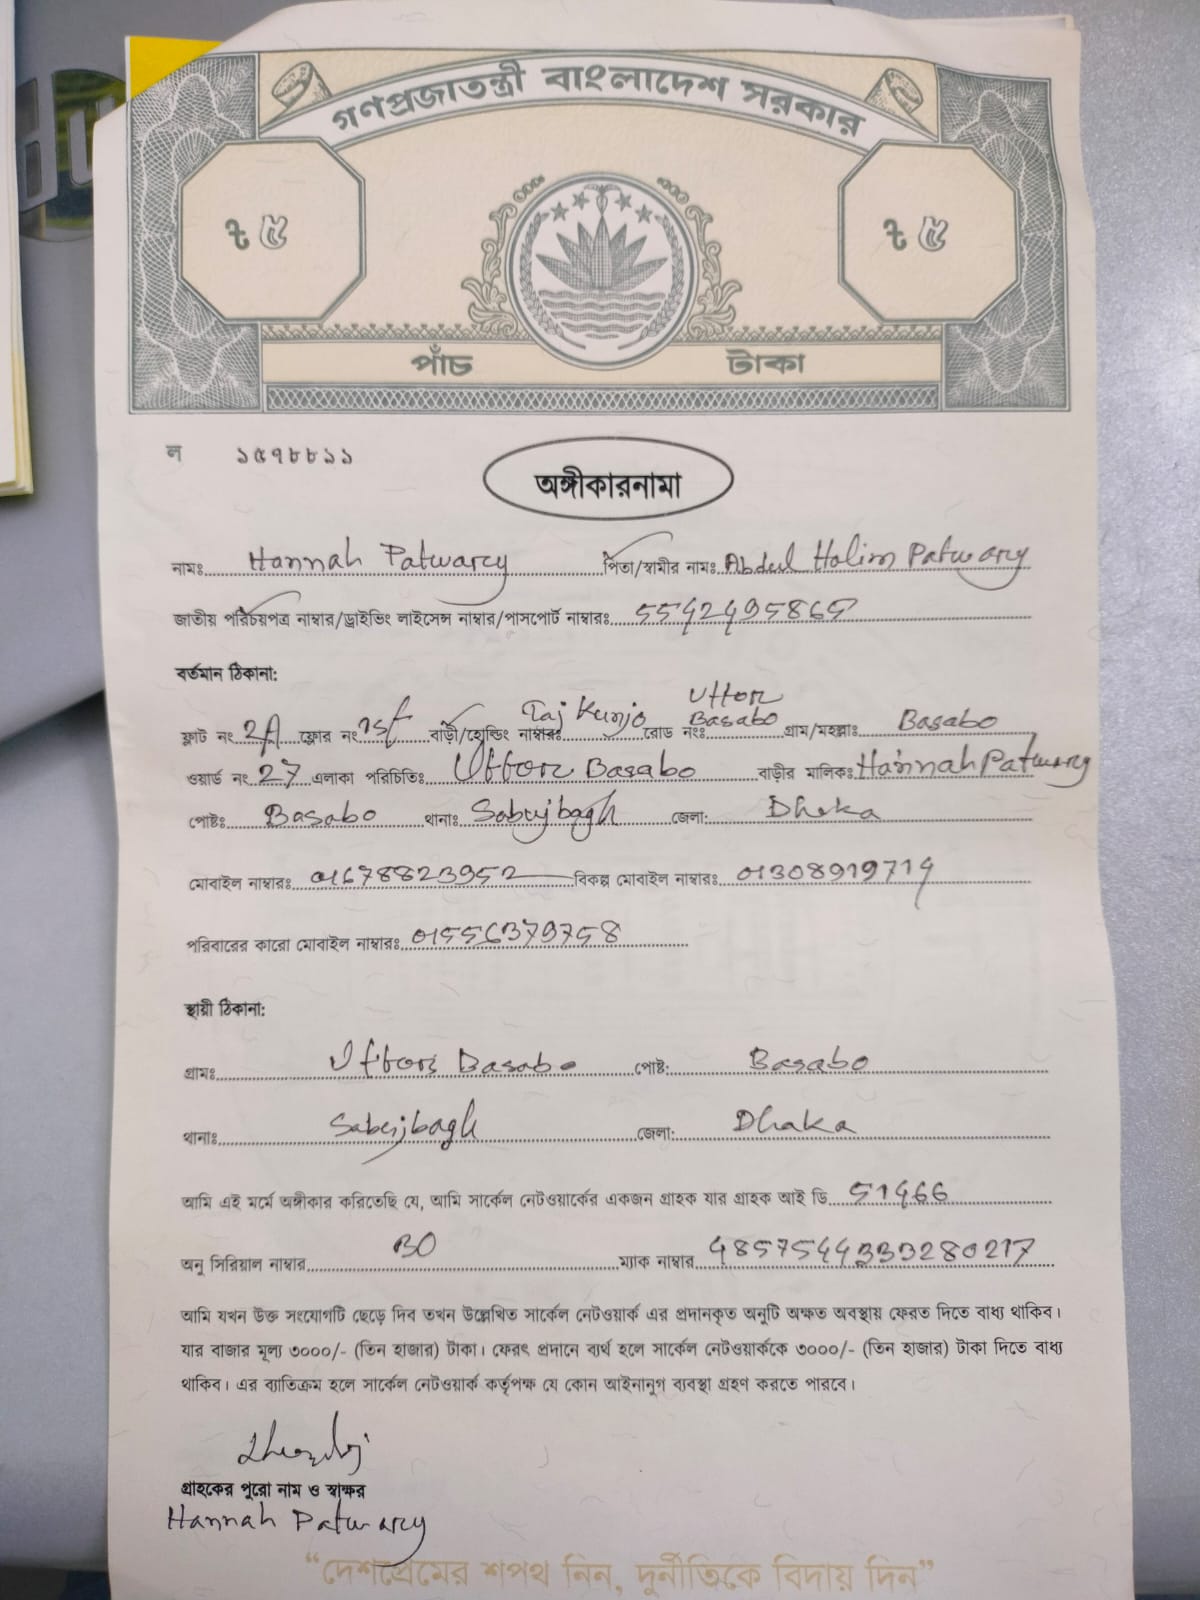 গণপ্রজাতন্ত্রী বাংলাদেশ সরকার
৳ ৫ ৳ ৫
পাঁচ টাকা
ল ১৫৭৮৮১১
অঙ্গীকারনামা
নামঃ Hannah Patwarcy পিতা/স্বামীর নামঃ Abdul Halim Patwary
জাতীয় পরিচয়পত্র নাম্বার/ড্রাইভিং লাইসেন্স নাম্বার/পাসপোর্ট নাম্বারঃ 5542495865
বর্তমান ঠিকানা:
ফ্লাট নং 2A ফ্লোর নং 1st বাড়ী/হোল্ডিং নাম্বারঃ Taj Kunjo রোড নংঃ Uttor Basabo গ্রাম/মহল্লাঃ Basabo
ওয়ার্ড নং 27 এলাকা পরিচিতিঃ Uttor Basabo বাড়ীর মালিকঃ Hannah Patwarcy
পোষ্টঃ Basabo থানাঃ Sabujbagh জেলা: Dhaka
মোবাইল নাম্বারঃ 01678823952 বিকল্প মোবাইল নাম্বারঃ 01308919714
পরিবারের কারো মোবাইল নাম্বারঃ 01556379758
স্থায়ী ঠিকানা:
গ্রামঃ Uttor Basabo পোষ্ট: Basabo
থানাঃ Sabujbagh জেলা: Dhaka
আমি এই মর্মে অঙ্গীকার করিতেছি যে, আমি সার্কেল নেটওয়ার্কের একজন গ্রাহক যার গ্রাহক আই ডি 51466
অনু সিরিয়াল নাম্বার BO ম্যাক নাম্বার 4857544333280217
আমি যখন উক্ত সংযোগটি ছেড়ে দিব তখন উল্লেখিত সার্কেল নেটওয়ার্ক এর প্রদানকৃত অনুটি অক্ষত অবস্থায় ফেরত দিতে বাধ্য থাকিব।
যার বাজার মূল্য ৩০০০/- (তিন হাজার) টাকা। ফেরৎ প্রদানে ব্যর্থ হলে সার্কেল নেটওয়ার্ককে ৩০০০/- (তিন হাজার) টাকা দিতে বাধ্য
থাকিব। এর ব্যতিক্রম হলে সার্কেল নেটওয়ার্ক কর্তৃপক্ষ যে কোন আইনানুগ ব্যবস্থা গ্রহণ করতে পারবে।
গ্রাহকের পুরো নাম ও স্বাক্ষর
Hannah Patwarcy
“দেশপ্রেমের শপথ নিন, দুর্নীতিকে বিদায় দিন”